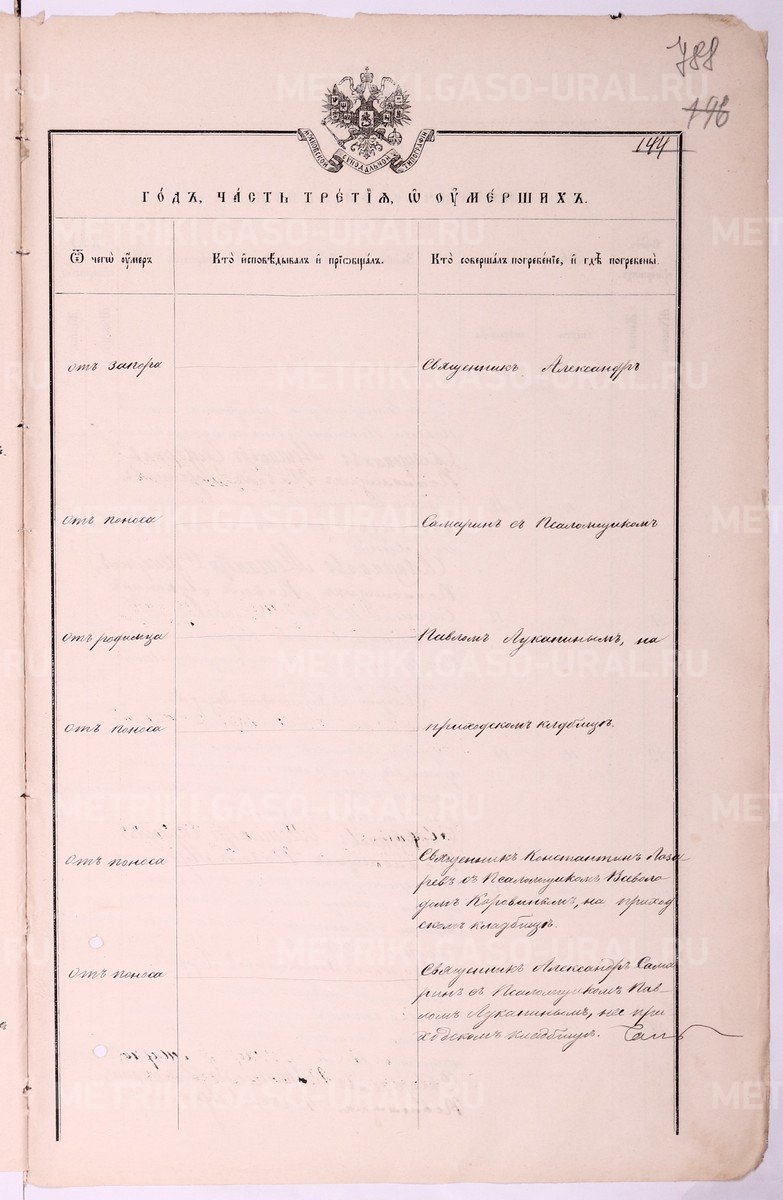 788
196
144
МОСКОВСКОЙ СѴНОДАЛЬНОЙ ТИПОГРАФІИ
ГО́ДЪ, ЧА́СТЬ ТРЕ́ТІѦ, Ѡ҆ ОУ҆МЕ́РШИХЪ.
Ѿ чегѡ̀ оу҆́меръ
Кто̀ и҆сповѣ́дывалъ и҆ прїѡбща́лъ.
Кто̀ соверша́лъ погребе́нїе, и҆ гдѣ̀ погребены̀.
отъ запора
Священникъ Александръ
отъ поноса
Самаринъ съ Псаломщикомъ
отъ родимца
Павломъ Луканинымъ, на
отъ поноса
приходскомъ кладбищѣ.
отъ поноса
Священникъ Константинъ Лаза
ревъ съ Псаломщикомъ Всеволо
домъ Коровинымъ, на приход
скомъ кладбищѣ.
отъ поноса
Священникъ Александръ Сама
ринъ съ Псаломщикомъ Пав
ломъ Луканинымъ, на при
ходскомъ кладбищѣ.
METRIKI.GASO-URAL.RU